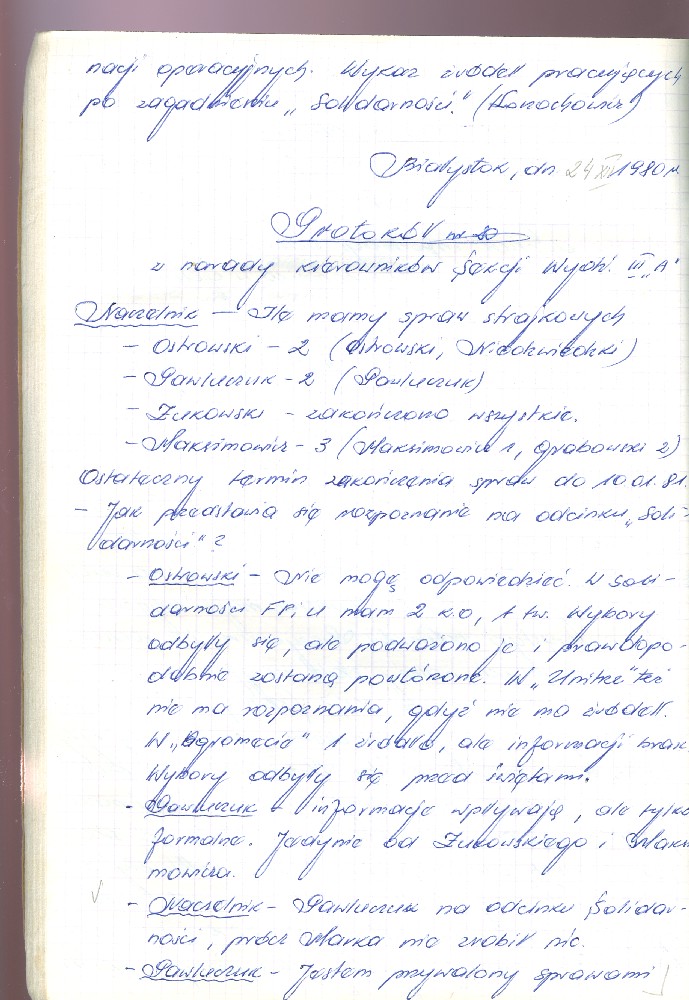 nacji operacyjnych. Wykaz źródeł pracujących
po zagadnieniu „Solidarność." (Konachowicz)
Białystok, dn 24 XII 1980 r
Protokół nr 20
z narady kierowników Sekcji Wydz. III „A"
Naczelnik – Ile mamy spraw strajkowych
– Ostrowski – 2 (Ostrowski, Niedźwiedzki)
– Pawluczuk – 2 (Pawluczuk)
– Żukowski – zakończono wszystkie.
– Maksimowicz – 3 (Maksimowicz 1, Grabowski 2)
Ostateczny termin zakończenia spraw do 10.01.81.
– Jak przedstawia się rozpoznanie na odcinku „Soli-
darności"?
– Ostrowski – Nie mogę odpowiedzieć. W Soli-
darności FPiU mam 2 k.o, 1 tw. Wybory
odbyły się, ale podważono je i prawdopo-
dobnie zostaną powtórzone. W „Unitrze" też
nie ma rozpoznania, gdyż nie ma źródeł.
W „Agromecie" 1 źródło, ale informacji brak.
Wybory odbyły się przed świętami.
– Pawluczuk – informacje wpływają, ale tylko
formalne. Jedynie od Żukowskiego i Maksi
mowicza.
– Naczelnik – Pawluczuk na odcinku Solidar-
ności, prócz Marka nie zrobił nic.
– Pawluczuk – Jestem przywalony sprawami